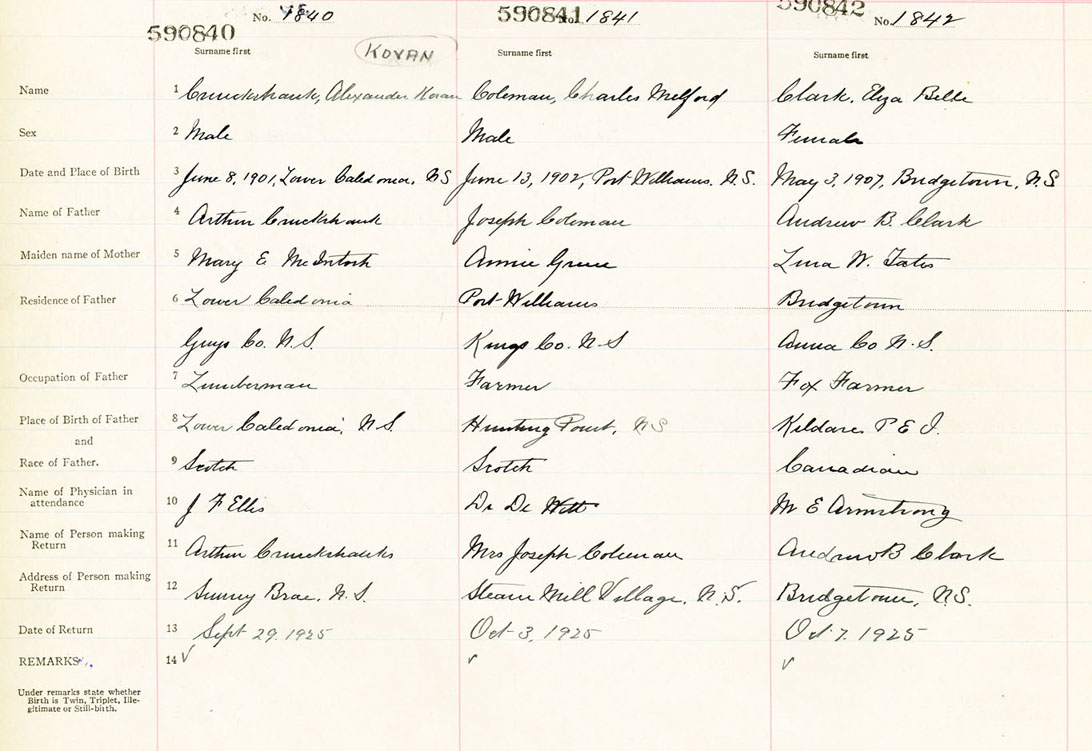 590840 No. 1840 590841 No. 1841 590842 No. 1842
Surname first KOVAN Surname first Surname first
Name 1 Cruickshank, Alexander Kovan Coleman, Charles Melford Clark, Elza Belle
Sex 2 Male Male Female
Date and Place of Birth 3 June 8, 1901, Lower Caledonia, NS June 13, 1902, Port Williams, N.S. May 3, 1907, Bridgetown, N.S
Name of Father 4 Arthur Cruickshank Joseph Coleman Andrew B. Clark
Maiden name of Mother 5 Mary E McIntosh Annie Lena W.
Residence of Father 6 Lower Caledonia Port Williams Bridgetown
Guys Co. N.S. Kings Co. N.S Anna Co N.S.
Occupation of Father 7 Lumberman Farmer Fox Farmer
Place of Birth of Father 8 Lower Caledonia, N.S Hunting Point, NS Kildare P E I.
and
Race of Father. 9 Scotch Scotch Canadian
Name of Physician in
attendance 10 J F Ellis Dr De Witt M E Armstrong
Name of Person making
Return 11 Arthur Cruickshanks Mrs Joseph Coleman Andrew B Clark
Address of Person making
Return 12 Sunny Brae, N.S. Steam Mill Village, N.S. Bridgetown, N.S.
Date of Return 13 Sept 29, 1925 Oct 3, 1925 Oct 7, 1925
REMARKS 14 ✓ ✓ ✓
Under remarks state whether
Birth is Twin, Triplet, Ille-
gitimate or Still-birth.